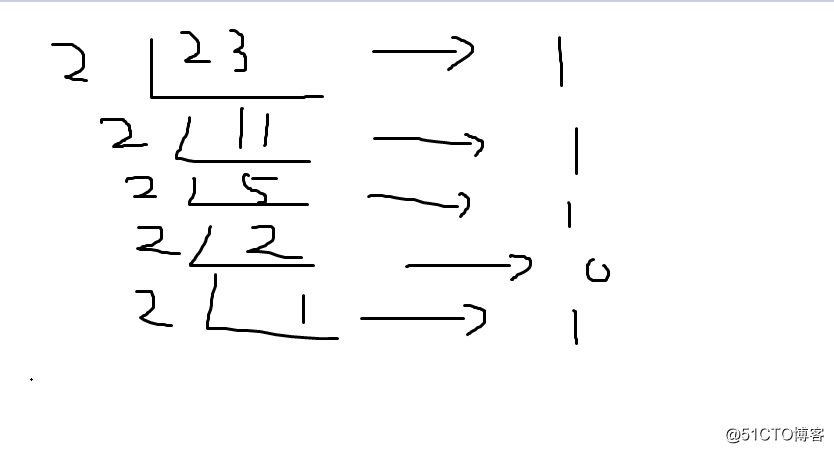 2 23 → 1
2 11 → 1
2 5 → 1
2 2 → 0
2 1 → 1
@51CTO博客